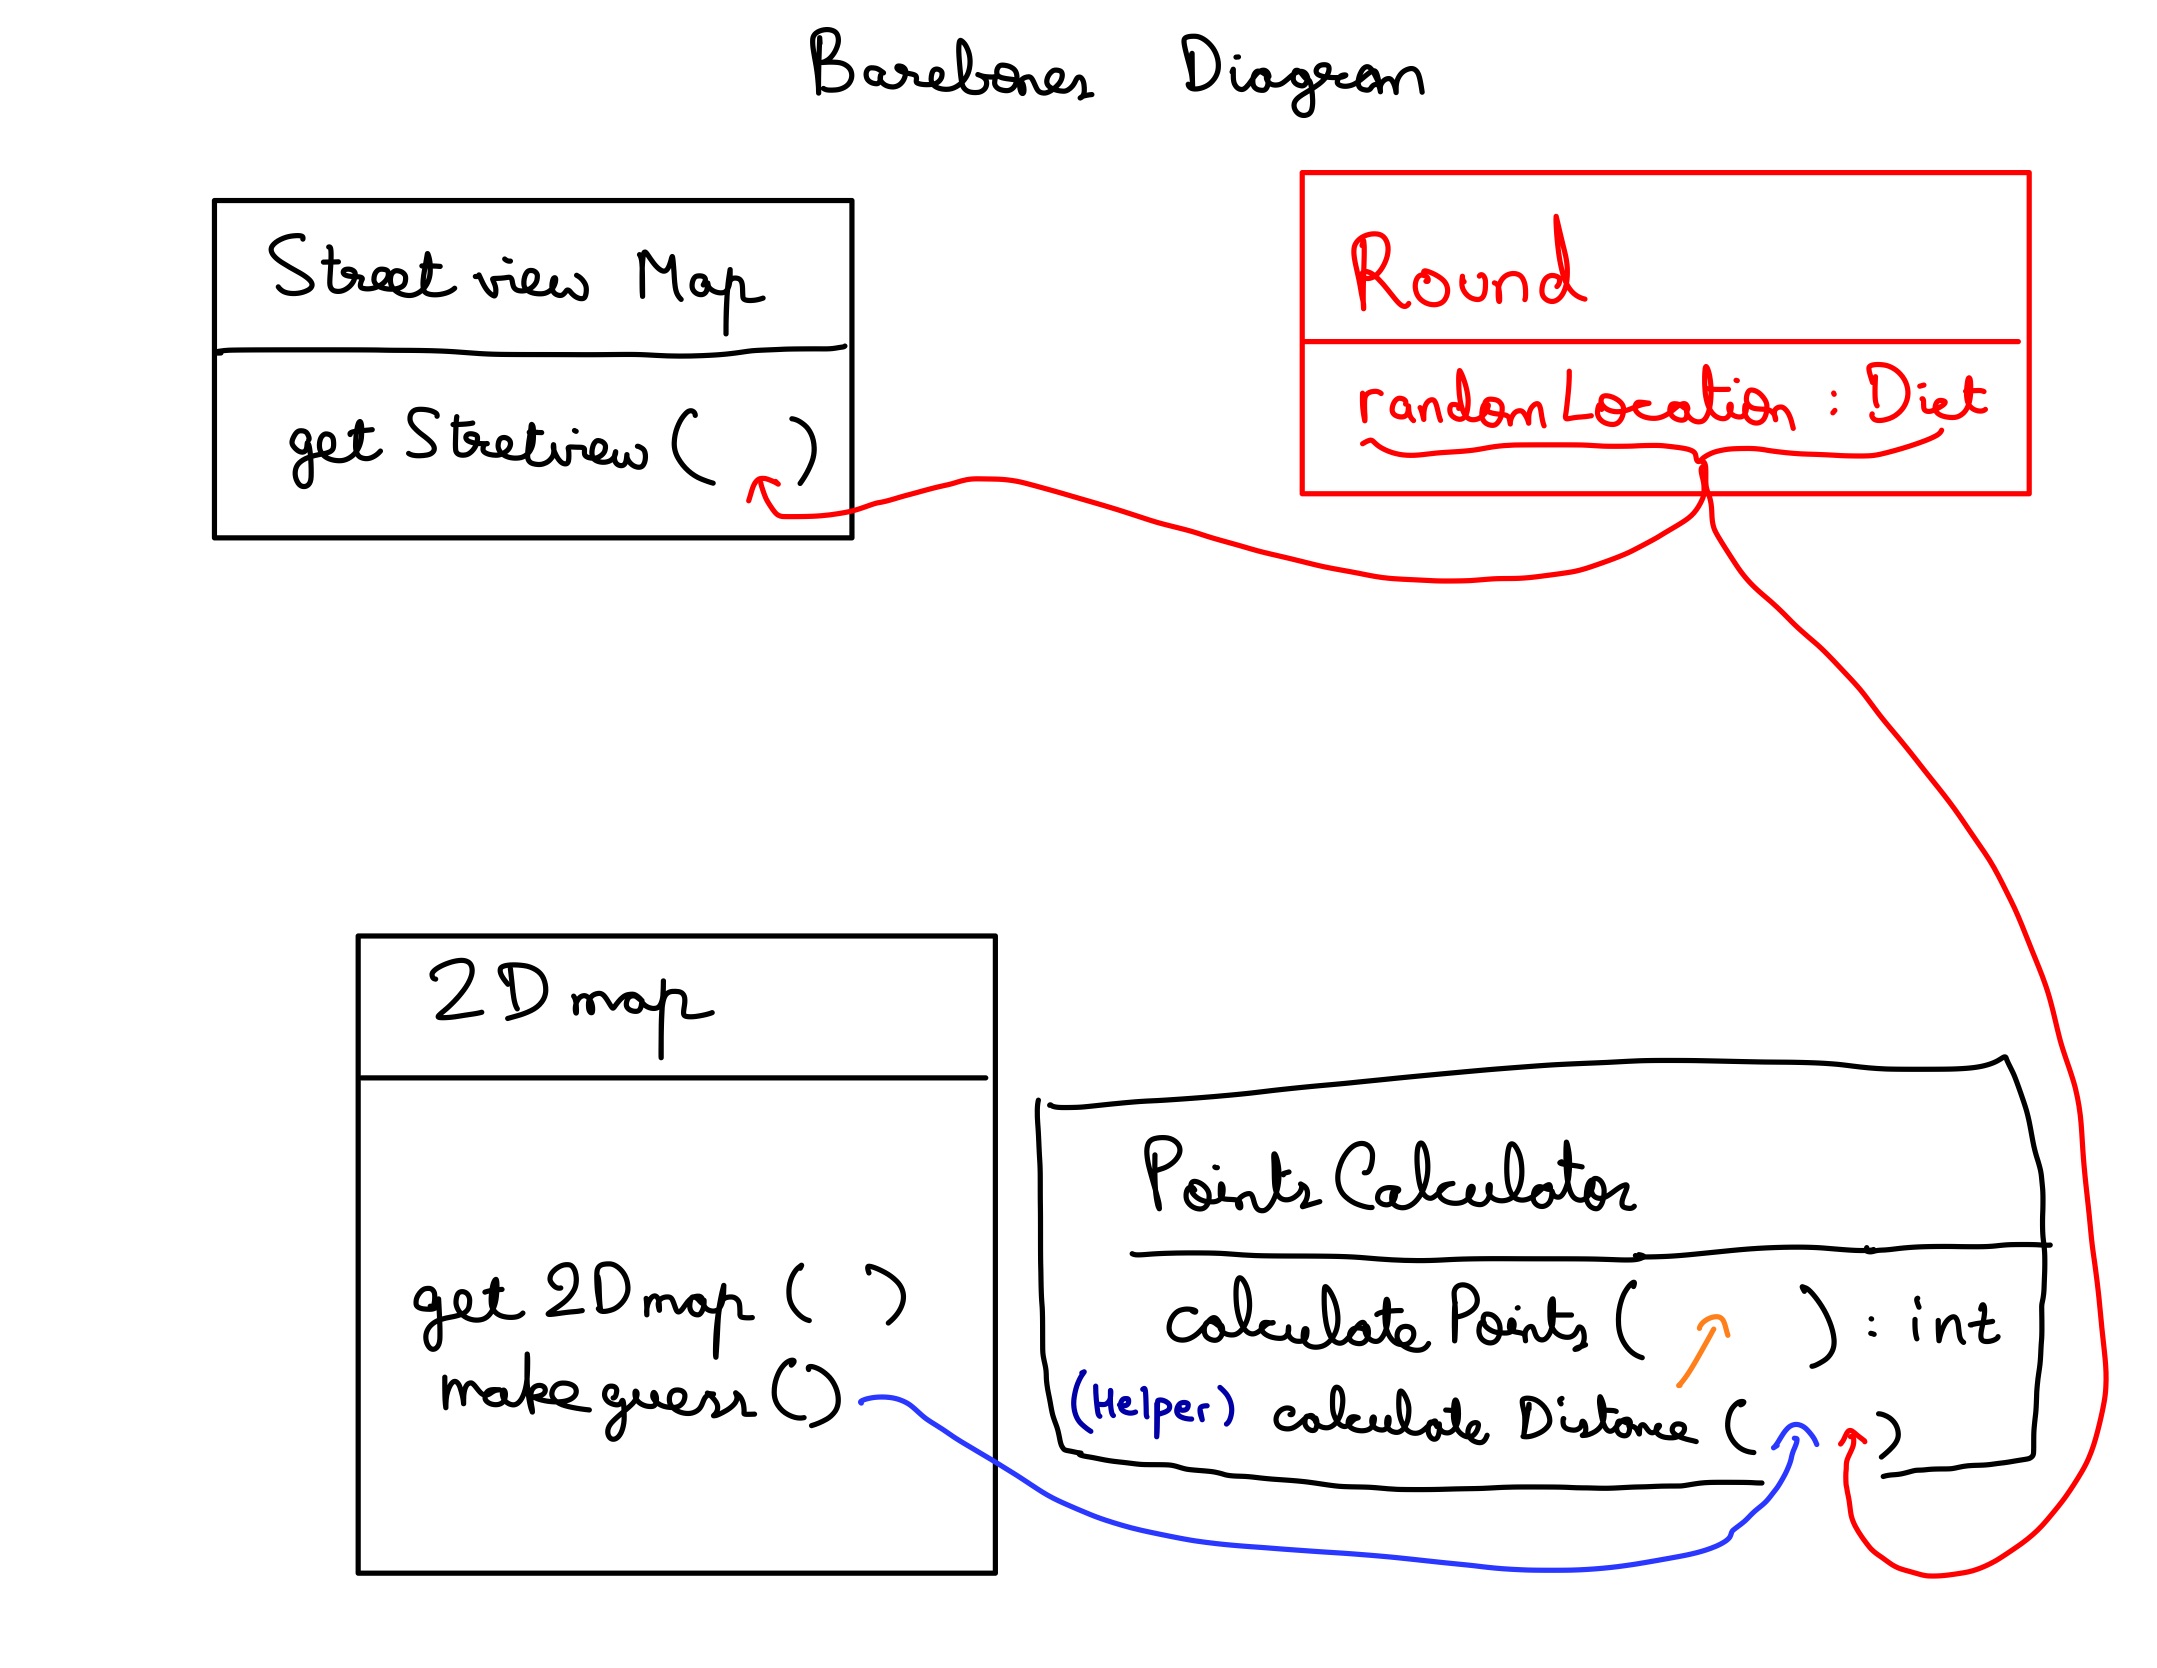 Barebones Diagram
Street view Map
get Streetview( )
Round
random Location : Dict
2D map
get 2D map ( )
make guess()
Points Calculator
calculate Points ( ) : int
(Helper) calculate Distance ( )